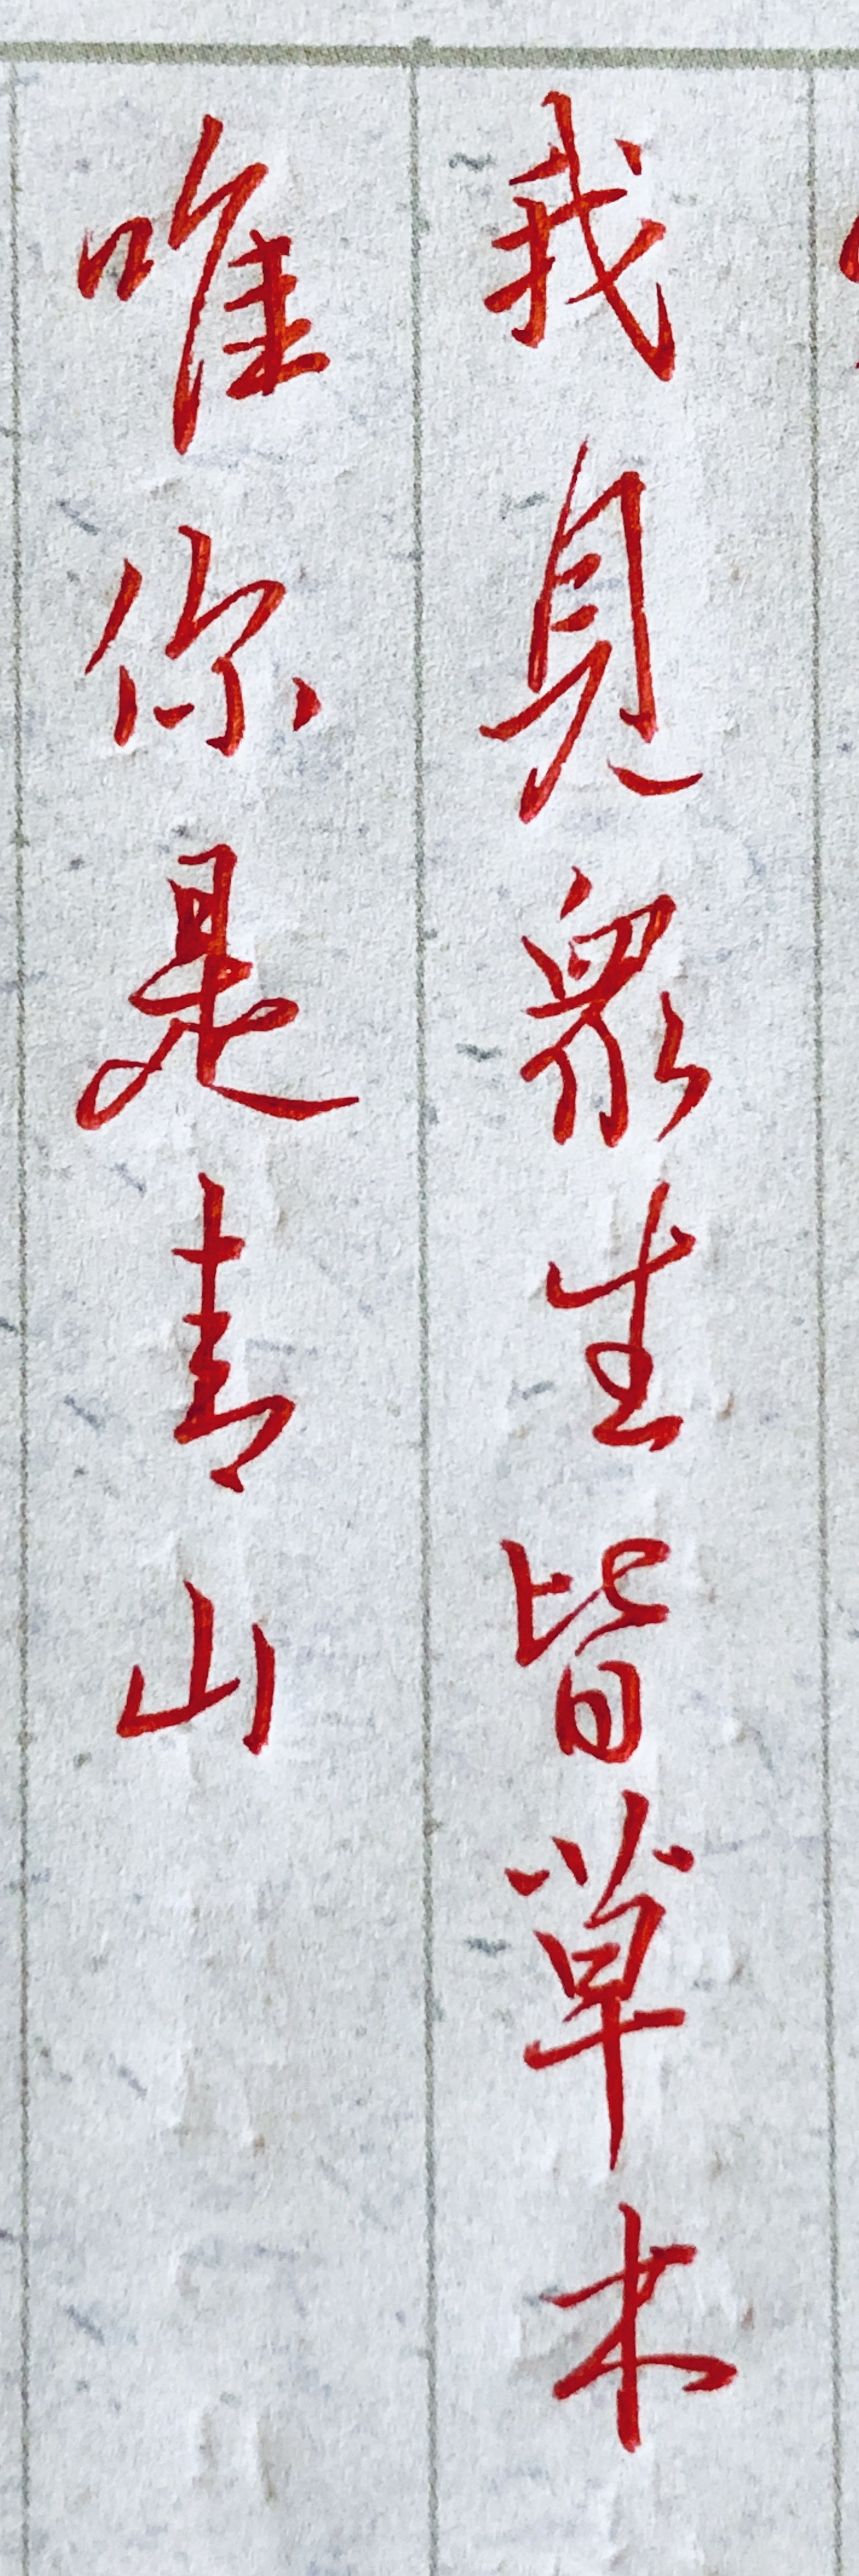 我見眾生皆草木
唯你是青山